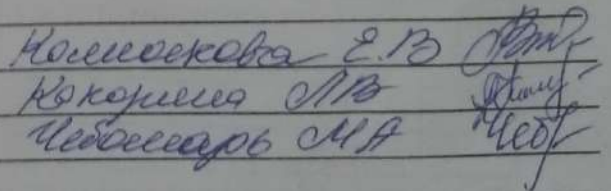 Колмоскова Е.В
Какорина Л В
Чеботарь М А Чеб